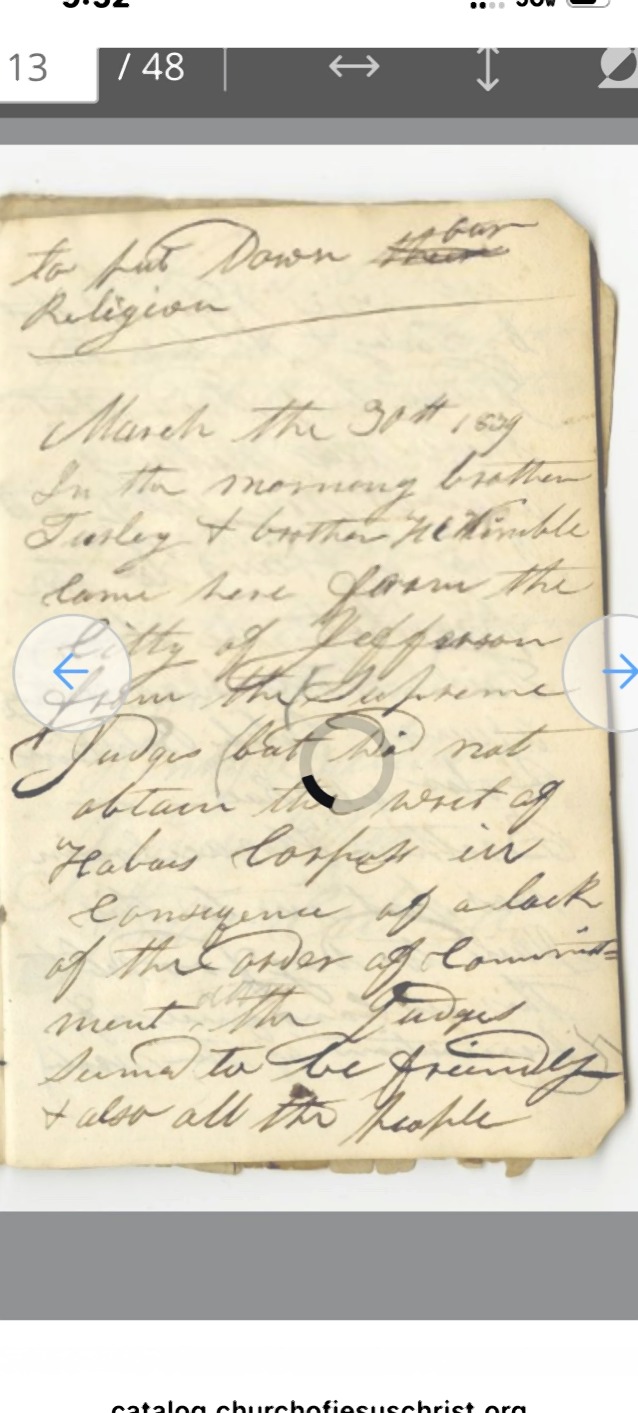 5:52
5GW
13 / 48
to put Down their our
Religion
March the 30th 1839
In the morning brother
Turley & brother HC Kimble
Came here from the
Citty of Jefferson
from the Supreme
Judges but did not
obtain the writ of
Habus Corpus in
Consequence of a lack
of the order of Commit=
ment, the Judges
seemd to be friendly
& also all the People
catalog.churchofjesuschrist.org